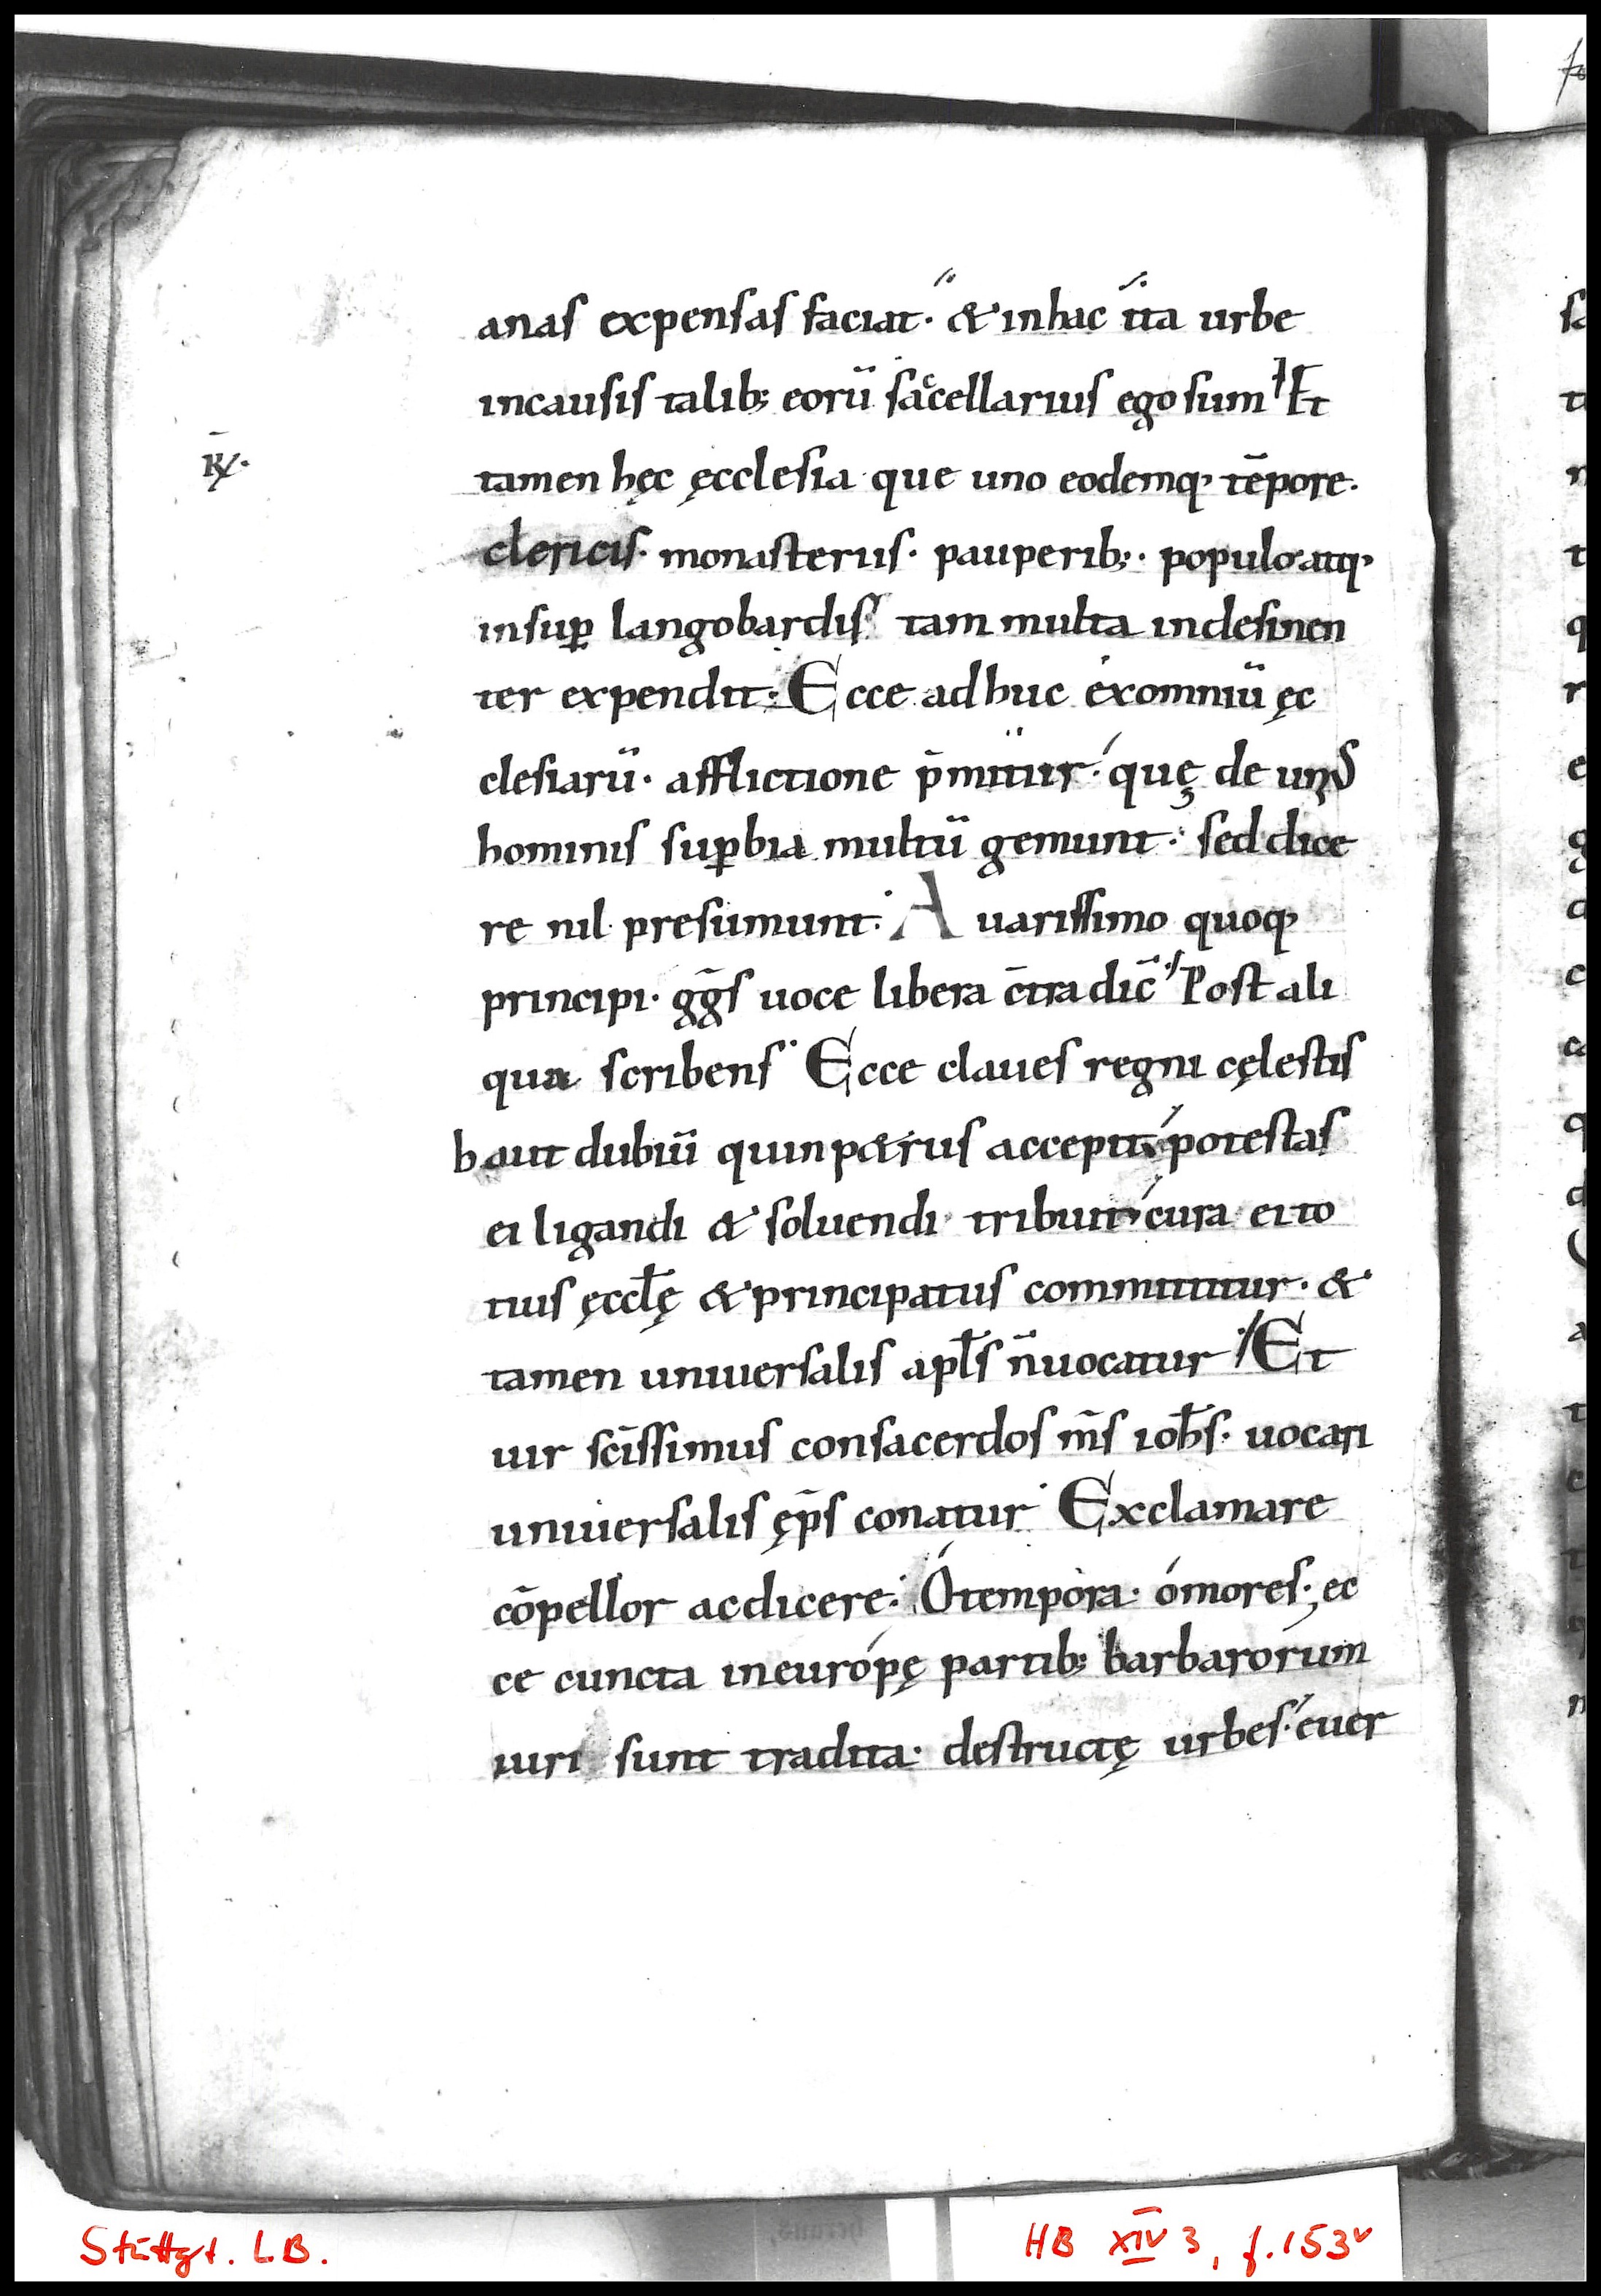 anas expensas faciat· & inhac ita urbe
incausis talib; eorū saccellarius ego sum Et
R̄x·
tamen hęc ęcclesia que uno eodemq· tēpore·
clericis· monasteriis· pauperib;· populo atq·
insup̱ langobardis tam multa indesinen
ter expendit· Ecce adhuc exomniū ęc
clesiarū· afflictione p̄mitur· quę de uni'
hominis sup̱bia multū gemunt· sed dice
re nil presumunt· Auarissimo quoq·
principi· gḡs uoce libera c̄tradic̄ Post ali
qua scribens Ecce claues regni cęlestis
haut dubiū quin p&rus accepit potestas
ei ligandi & soluendi tribuit cura ei to
tius ęccl̄ę & principatus committitur· &
tamen uniuersalis apl̄s n̄ uocatur Et
uir sc̄issimus consacerdos m̄s ioh̄s· uocari
uniuersalis ęp̄s conatur Exclamare
cōpellor acdicere· Ó tempora· ó mores; ec
ce cuncta ineurópę partib; barbarorum
iuri sunt tradita· destructę urbes· euer
Stuttgt. LB.
HB XIV 3, f.153v